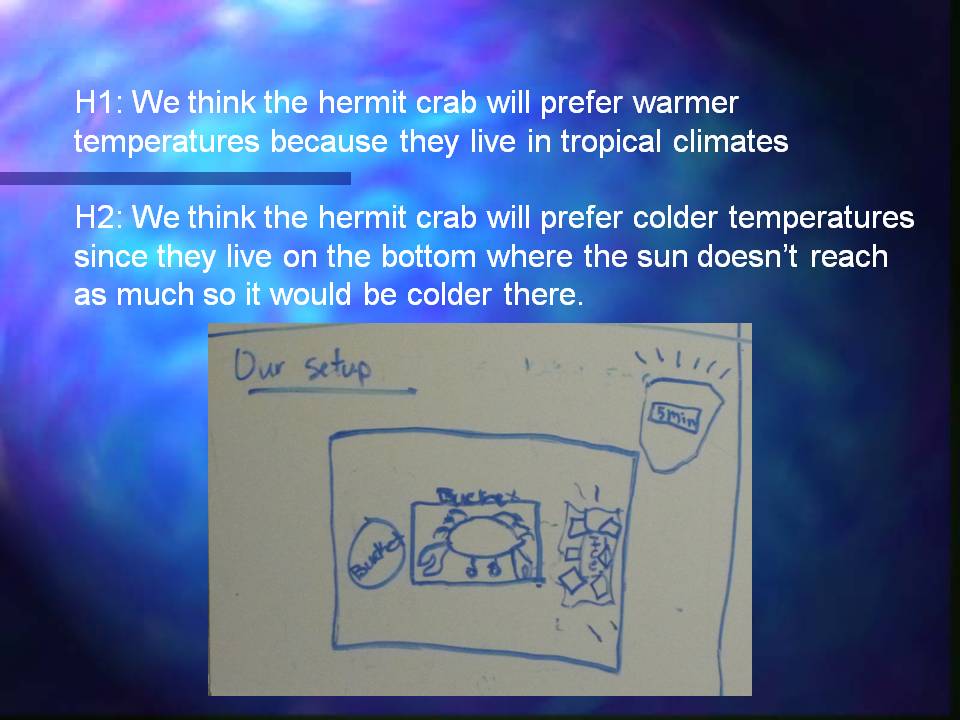 H1: We think the hermit crab will prefer warmer
temperatures because they live in tropical climates
H2: We think the hermit crab will prefer colder temperatures
since they live on the bottom where the sun doesn’t reach
as much so it would be colder there.
Our setup
5 min
Bucket
Bucket
Ice